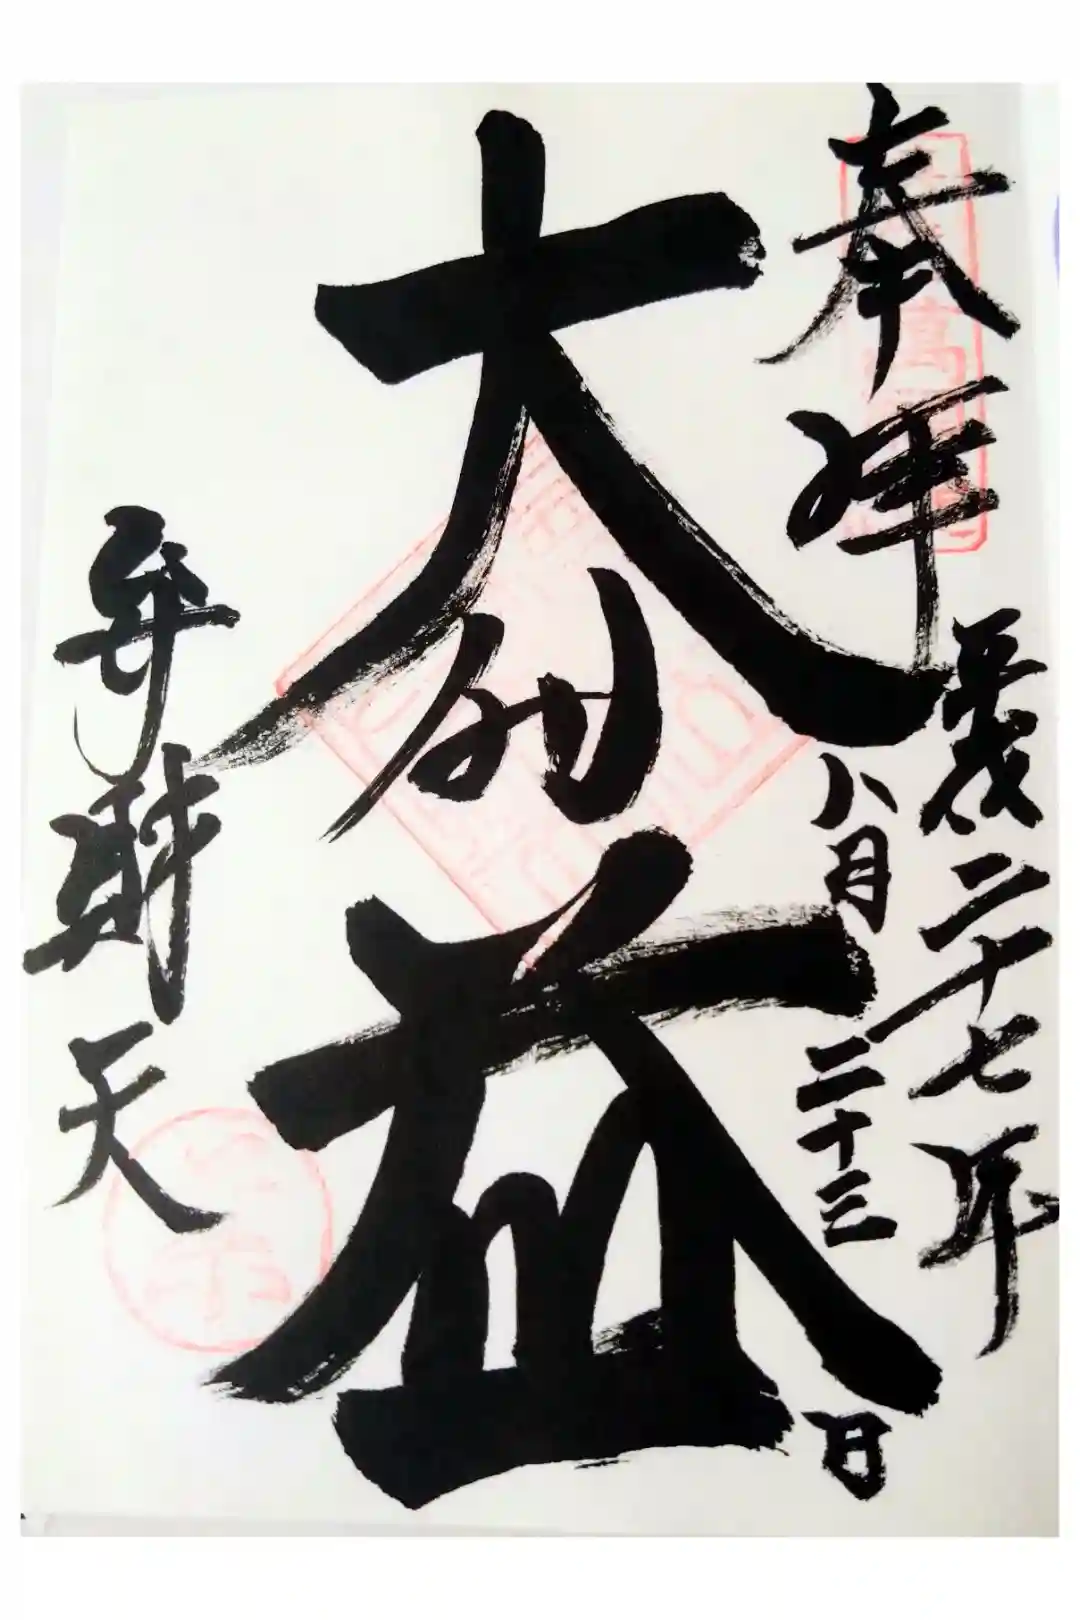 奉拝
平成二十七年
八月二十三日
大
益
弁財天